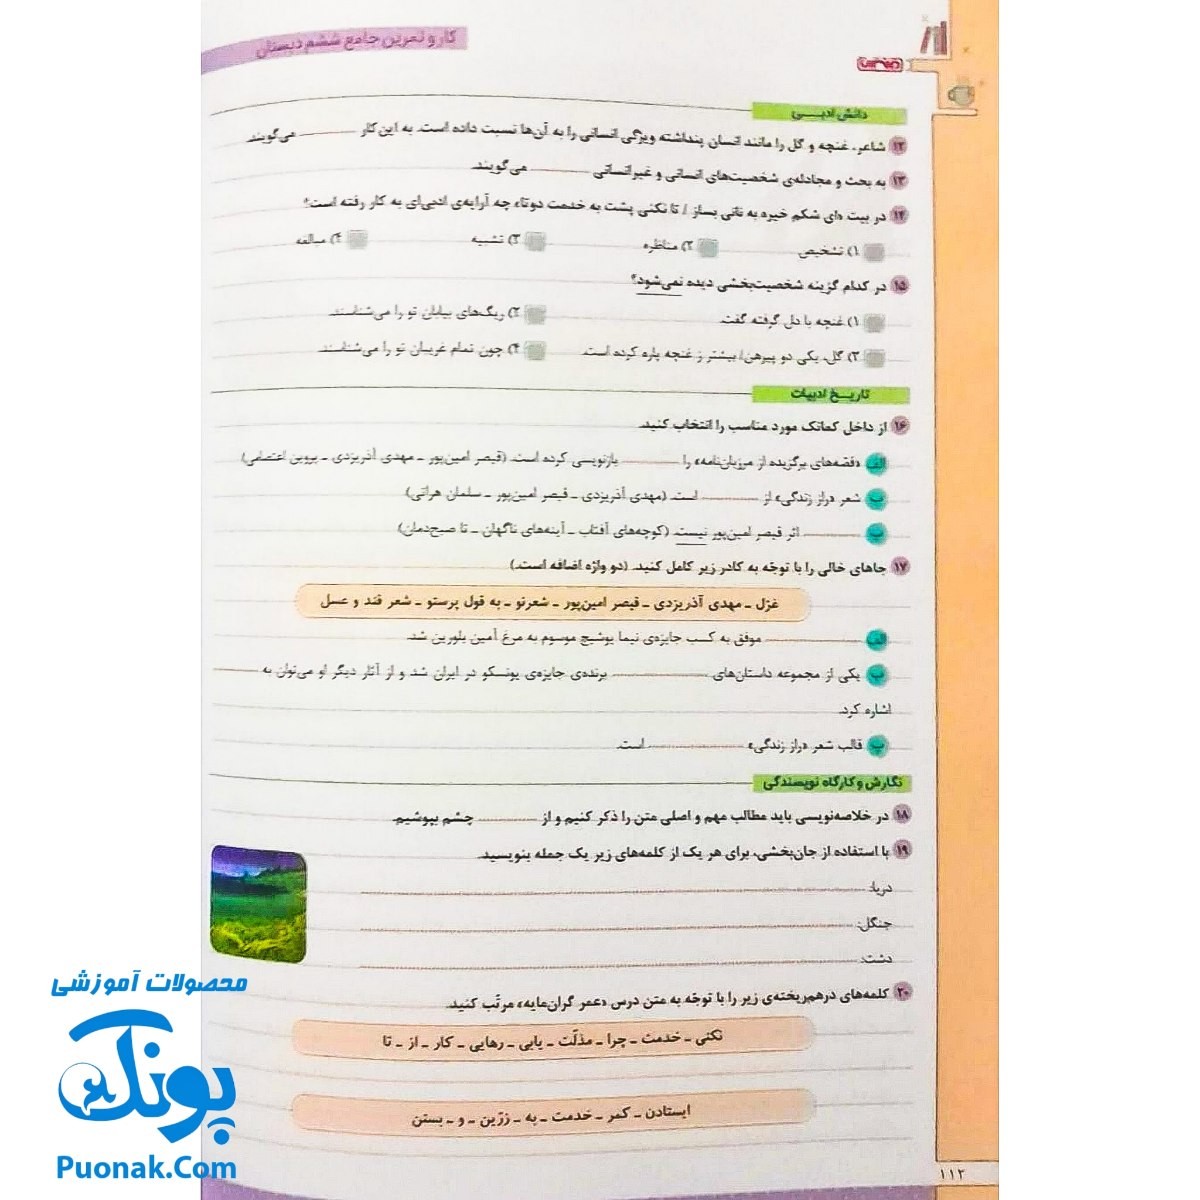 کار و تمرین جامع ششم دبستان
دانش ادبـــی
۱۲ شاعر، غنچه و گل را مانند انسان پنداشته ویژگی انسانی را به آن‌ها نسبت داده است. به این کار ........ می‌گویند.
۱۳ به بحث و مجادله‌ی شخصیت‌های انسانی و غیرانسانی ........ می‌گویند.
۱۴ در بیت «ای شکم خیره به نانی بساز / تا نکنی پشت به خدمت دوتا» چه آرایه‌ی ادبی‌ای به کار رفته است؟
۱) تشخیص ۲) مناظره ۳) تشبیه ۴) مبالغه
۱۵ در کدام گزینه شخصیت‌بخشی دیده نمی‌شود؟
۱) غنچه با دل گرفته گفت. ۲) ریگ‌های بیابان تو را می‌شناسند.
۳) گل، یکی دو پیرهن/ بیشتر ز غنچه پاره کرده است. ۴) چون تمام غریبان تو را می‌شناسند.
تاریــخ ادبیات
۱۶ از داخل کمانک مورد مناسب را انتخاب کنید.
الف «قصّه‌های برگزیده از مرزبان‌نامه» را ........ بازنویسی کرده است. (قیصر امین‌پور ـ مهدی آذریزدی ـ پروین اعتصامی)
ب شعر «راز زندگی» از ........ است. (مهدی آذریزدی ـ قیصر امین‌پور ـ سلمان هراتی)
پ ........ اثر قیصر امین‌پور نیست. (کوچه‌های آفتاب ـ آینه‌های ناگهان ـ تا صبح‌دمان)
۱۷ جاهای خالی را با توجّه به کادر زیر کامل کنید. (دو واژه اضافه است.)
غزل ـ مهدی آذریزدی ـ قیصر امین‌پور ـ شعرنو ـ به قول پرستو ـ شعر قند و عسل
الف ........ موفق به کسب جایزه‌ی نیما یوشیج موسوم به مرغ آمین بلورین شد.
ب یکی از مجموعه داستان‌های ........ برنده‌ی جایزه‌ی یونسکو در ایران شد و از آثار دیگر او می‌توان به ........
اشاره کرد.
پ قالب شعر «راز زندگی» ........ است.
نگارش و کارگاه نویسندگی
۱۸ در خلاصه‌نویسی باید مطالب مهم و اصلی متن را ذکر کنیم و از ........ چشم بپوشیم.
۱۹ با استفاده از جان‌بخشی، برای هر یک از کلمه‌های زیر یک جمله بنویسید.
دریا: ........
جنگل: ........
دشت: ........
۲۰ کلمه‌های درهم‌ریخته‌ی زیر را با توجّه به متن درس «عمر گران‌مایه» مرتّب کنید.
نکنی ـ خدمت ـ چرا ـ مذلّت ـ یابی ـ رهایی ـ کار ـ از ـ تا
ایستادن ـ کمر ـ خدمت ـ به ـ زرّین ـ و ـ بستن
۱۱۲
محصولات آموزشی
پونک
Puonak.Com